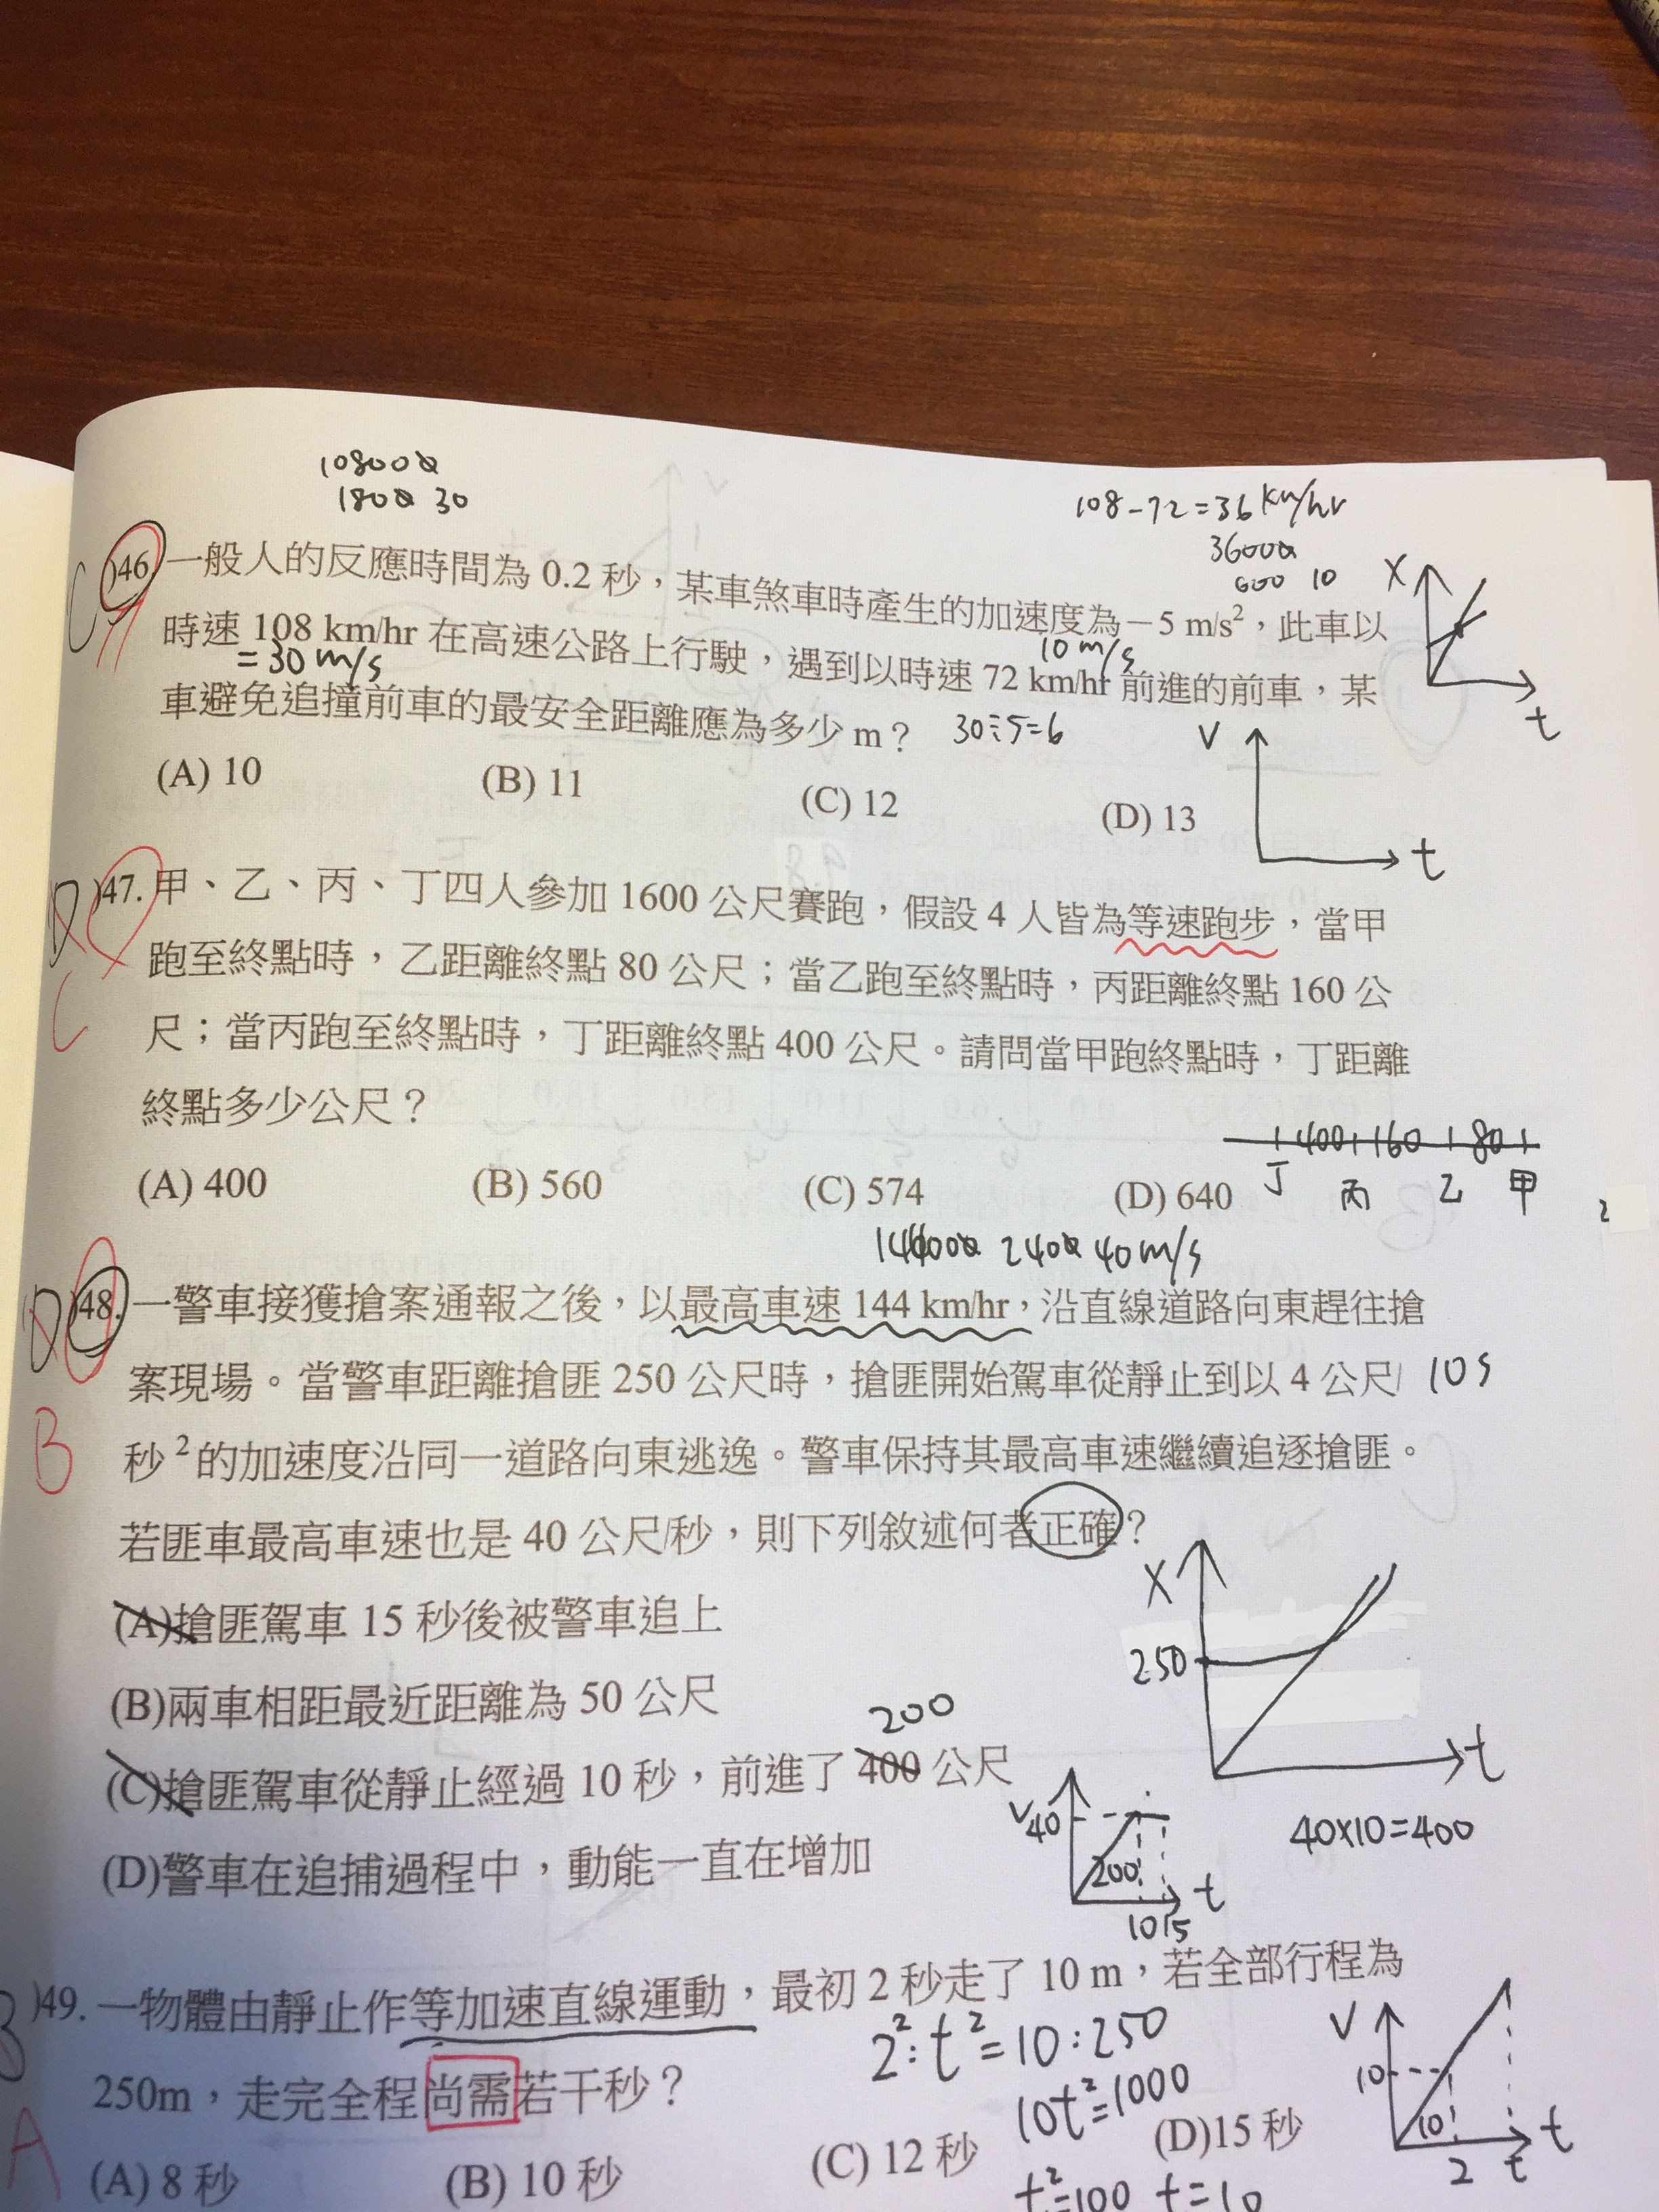 108000
1800 30
108-72=36 km/hr
36000
600 10
C
46. 一般人的反應時間為 0.2 秒，某車煞車時產生的加速度為－5 m/s²，此車以
時速 108 km/hr 在高速公路上行駛，遇到以時速 72 km/hr 前進的前車，某
=30 m/s
10 m/s
車避免追撞前車的最安全距離應為多少 m？
30÷5=6
x
t
v
t
(A) 10 (B) 11 (C) 12 (D) 13
D
)47. 甲、乙、丙、丁四人參加 1600 公尺賽跑，假設 4 人皆為等速跑步，當甲
跑至終點時，乙距離終點 80 公尺；當乙跑至終點時，丙距離終點 160 公
C
尺；當丙跑至終點時，丁距離終點 400 公尺。請問當甲跑終點時，丁距離
終點多少公尺？
400 160 80
丁 丙 乙 甲
(A) 400 (B) 560 (C) 574 (D) 640
2400 40m/s
D
)48. 一警車接獲搶案通報之後，以最高車速 144 km/hr，沿直線道路向東趕往搶
案現場。當警車距離搶匪 250 公尺時，搶匪開始駕車從靜止到以 4 公尺/
10s
B
秒²的加速度沿同一道路向東逃逸。警車保持其最高車速繼續追逐搶匪。
若匪車最高車速也是 40 公尺/秒，則下列敘述何者正確？
(A)搶匪駕車 15 秒後被警車追上
(B)兩車相距最近距離為 50 公尺
200
(C)搶匪駕車從靜止經過 10 秒，前進了 400 公尺
(D)警車在追捕過程中，動能一直在增加
x
250
t
v
40
200
10 15
t
40×10=400
B
)49. 一物體由靜止作等加速直線運動，最初 2 秒走了 10 m，若全部行程為
250m，走完全程尚需若干秒？
2²:t²=10:250
10t²=1000
t²=100 t=10
A
(A) 8 秒 (B) 10 秒 (C) 12 秒 (D)15 秒
v
10
10
2
t
t